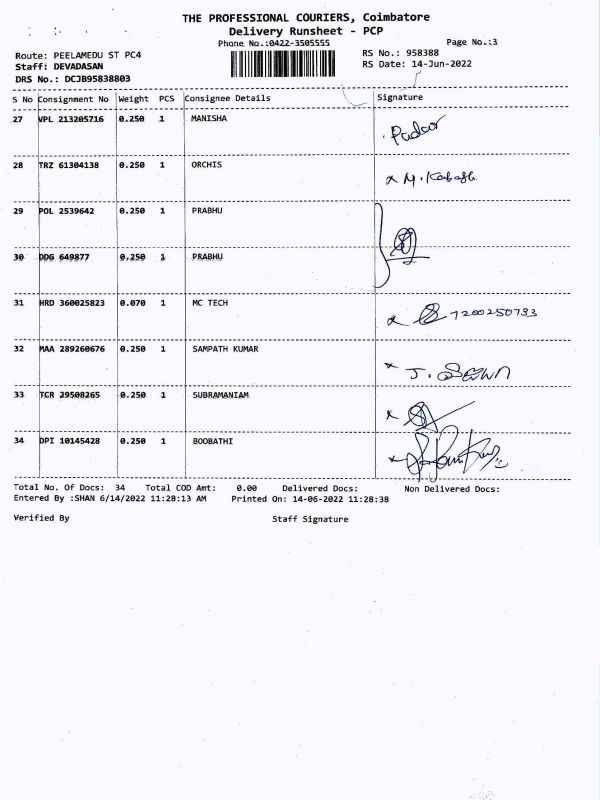 THE PROFESSIONAL COURIERS, Coimbatore
Delivery Runsheet - PCP
Phone No.:0422-3505555
Page No.:3
Route: PEELAMEDU ST PC4
RS No.: 958388
Staff: DEVADASAN
RS Date: 14-Jun-2022
DRS No.: DCJB95838803
S No Consignment No Weight PCS Consignee Details Signature
27 VPL 213205716 0.250 1 MANISHA
28 TRZ 61304138 0.250 1 ORCHIS
29 POL 2539642 0.250 1 PRABHU
30 DDG 649877 0.250 1 PRABHU
31 HRD 360025823 0.070 1 MC TECH 7200250733
32 MAA 289260676 0.250 1 SAMPATH KUMAR
33 TCR 29508265 0.250 1 SUBRAMANIAM
34 DPI 10145428 0.250 1 BOOBATHI
Total No. Of Docs: 34 Total COD Amt: 0.00 Delivered Docs: Non Delivered Docs:
Entered By :SHAN 6/14/2022 11:28:13 AM Printed On: 14-06-2022 11:28:38
Verified By Staff Signature